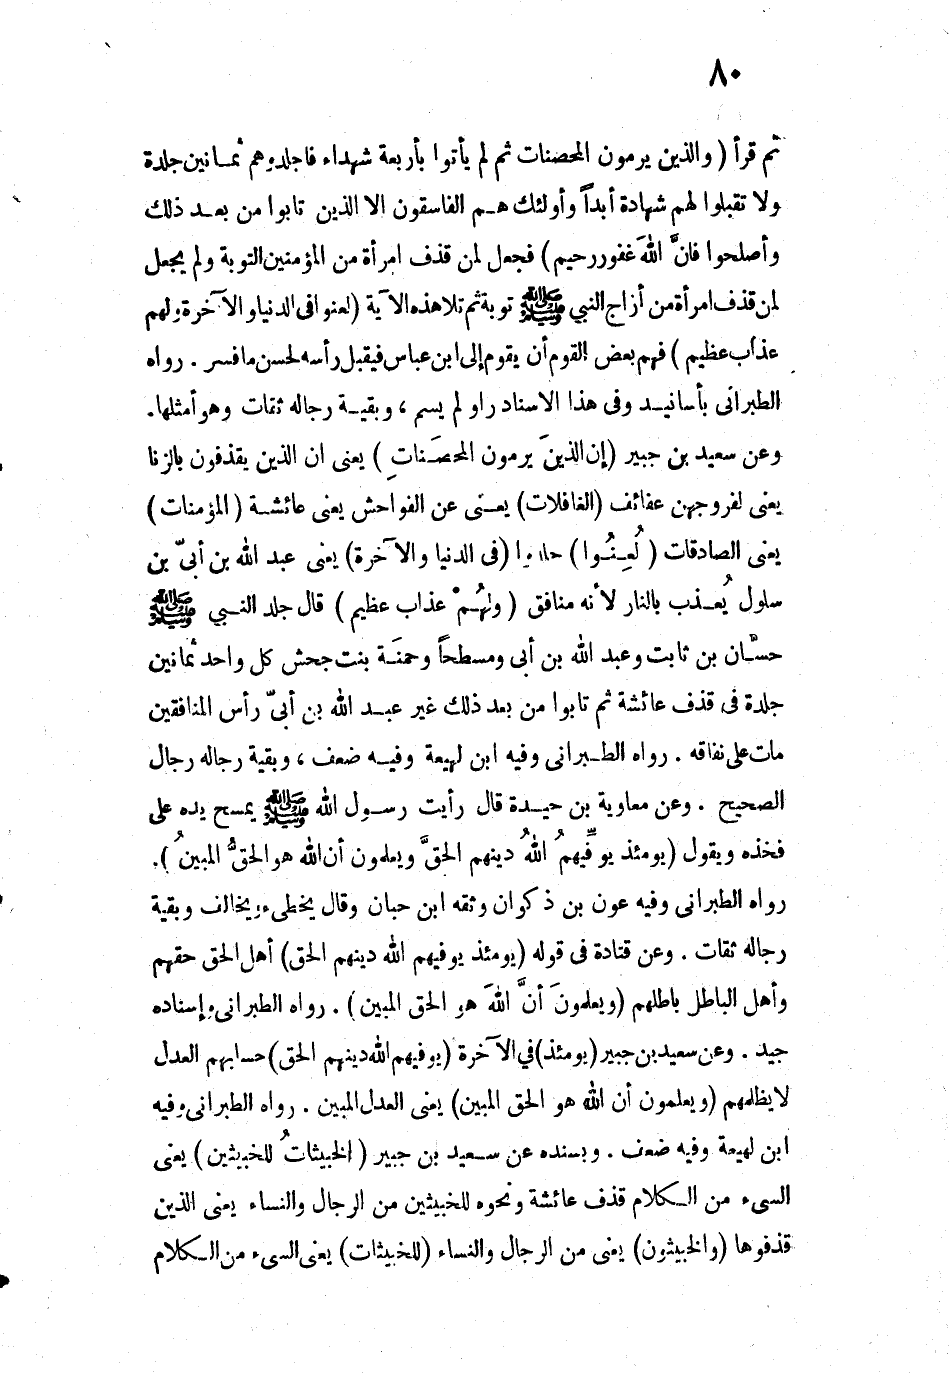 ٨٠
ثم قرأ ( والذين يرمون المحصنات ثم لم يأتوا بأربعة شهداء فاجلدوهم ثمانين جلدة
ولا تقبلوا لهم شهادة أبداً وأولئك هم الفاسقون الا الذين تابوا من بعد ذلك
وأصلحوا فانَّ اللهَ غفور رحيم ) فجعل لمن قذف امرأة من المؤمنين التوبة ولم يجعل
لمن قذف امرأة من أزاج النبي ﷺ توبة ثم تلا هذه الآية ( لعنوا فى الدنيا والآخرة ولهم
عذاب عظيم ) فهم بعض القوم أن يقوم إلى ابن عباس فيقبل رأسه لحسن ما فسر . رواه
الطبرانى بأسانيد وفى هذا الاسناد راو لم يسم ، وبقية رجاله ثقات وهو أمثلها.
وعن سعيد بن جبير (إن الذينَ يرمون المحصَناتِ ) يعنى ان الذين يقذفون بالزنا
يعنى لفروجهن عفائف (الغافلات) يعنى عن الفواحش يعنى عائشة ( المؤمنات )
يعنى الصادقات ( لُعِنُوا ) (فى الدنيا والآخرة) يعنى عبد الله بن أبىّ بن
سلول يُعذب بالنار لأنه منافق ( ولهُمْ عذاب عظيم ) قال جلد النبي ﷺ
حسَّان بن ثابت وعبد الله بن أبى ومسطحاً وحمنَة بنت جحش كل واحد ثمانين
جلدة فى قذف عائشة ثم تابوا من بعد ذلك غير عبد الله بن أبىّ رأس المنافقين
مات على نفاقه . رواه الطبرانى وفيه ابن لهيعة وفيه ضعف ، وبقية رجاله رجال
الصحيح . وعن معاوية بن حيدة قال رأيت رسول الله ﷺ يمسح يده على
فخذه ويقول (يومئذ يوفِّيهمُ اللهُ دينهم الحقَّ ويعلمون أن الله هو الحقُّ المبينُ ).
رواه الطبرانى وفيه عون بن ذكوان وثقه ابن حبان وقال يخطىء ويخالف وبقية
رجاله ثقات . وعن قتادة فى قوله (يومئذ يوفيهم الله دينهم الحق) أهل الحق حقهم
وأهل الباطل باطلهم (ويعلمونَ أنَّ اللهَ هو الحق المبين ) . رواه الطبرانى وإسناده
جيد . وعن سعيد بن جبير (يومئذ) في الآخرة (يوفيهم الله دينهم الحق) حسابهم العدل
لا يظلمهم (ويعلمون أن الله هو الحق المبين) يعنى العدل المبين . رواه الطبرانى وفيه
ابن لهيعة وفيه ضعف . وبسنده عن سعيد بن جبير ( الخبيثاتُ للخبيثين ) يعنى
السىء من الكلام قذف عائشة ونحوه للخبيثين من الرجال والنساء يعنى الذين
قذفوها (والخبيثون) يعنى من الرجال والنساء (للخبيثات) يعنى السىء من الكلام